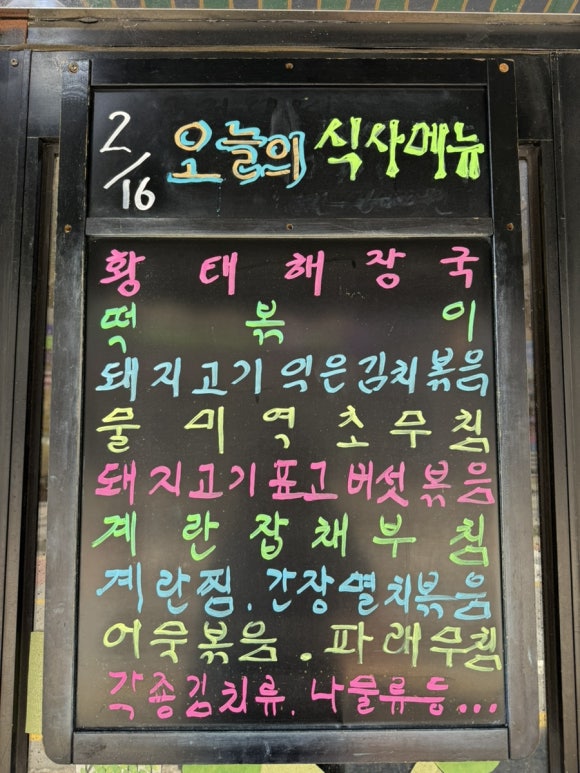 2/16 오늘의 식사메뉴
황태해장국
떡볶이
돼지고기 익은김치볶음
물미역초무침
돼지고기표고버섯볶음
계란잡채부침
계란찜. 간장멸치볶음
어묵볶음. 파래무침
각종김치류. 나물류등...